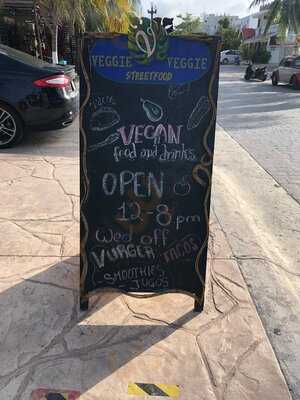 VEGGIE VEGGIE
STREETFOOD
VEGAN
food and drinks
OPEN
12-8 pm
Wed off
VURGER TACOS
- SMOOTHIES
- JUGOS